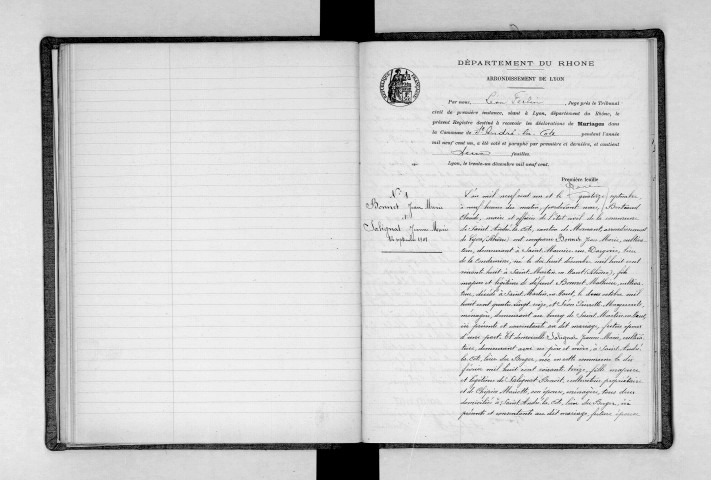 DÉPARTEMENT DU RHONE
ARRONDISSEMENT DE LYON
Par nous, Juge près le Tribunal
civil de première instance, séant à Lyon, département du Rhône, le
présent Registre destiné à recevoir les déclarations de Mariages dans
la Commune de St André-la-Côte pendant l'année
mil neuf cent un, a été coté et paraphé par première et dernière, et contient
feuilles.
Lyon, le trente-un décembre mil neuf cent.
Première feuille
N° 1
Bonnet Jean Marie
et
Salignat Jeanne Marie
septembre 1901
L'an mil neuf cent un et le quatorze septembre,
à neuf heures du matin, pardevant nous,
Claude, maire et officier de l'état civil de la commune
de Saint André la Côte, canton de Mornant, arrondissement
de Lyon, (Rhône) ont comparu Bonnet Jean Marie, cultiva
teur, demeurant à Saint Maurice sur Dargoire, lieu
de la né le dix huit décembre mil huit cent
soixante huit à Saint Martin en Haut (Rhône), fils
majeur et légitime de défunt Bonnet Mathieu, cultiva
teur, décédé à Saint Martin en Haut, le douze octobre mil
huit cent quatre vingt seize, et Marguerite,
ménagère, demeurant au bourg de Saint Martin en Haut,
ici présente et consentante au dit mariage, futur époux
d'une part. Et demoiselle Salignat Jeanne Marie, cultiva
trice, demeurant avec ses père et mère, à Saint André
la Côte, lieu du Berger, née en cette commune le dix
février mil huit cent soixante treize, fille majeure
et légitime de Salignat Benoît, cultivateur propriétaire
et de Mariette, son épouse, ménagère, tous deux
domiciliés à Saint André la Côte, lieu du Berger, ici
présents et consentants au dit mariage, future épouse